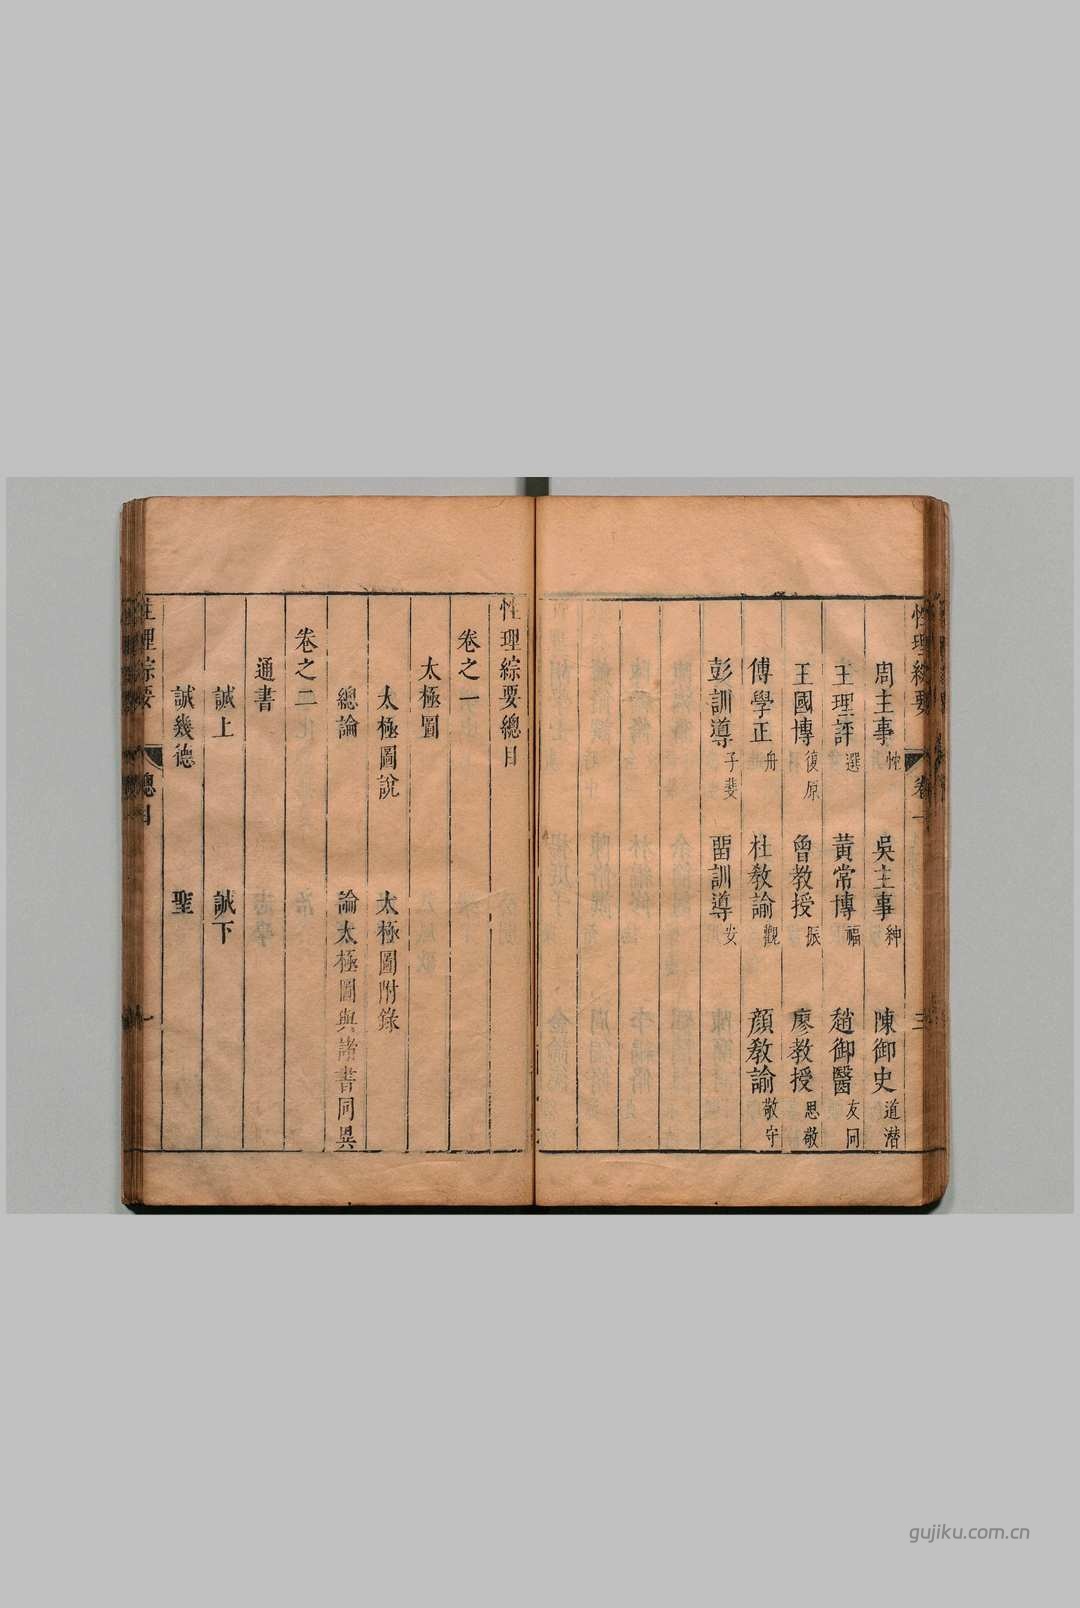 性理綜要 卷一 三
周主事忱 吳主事紳 陳御史道潜
王理評選 黃常博福 趙御醫友同
王國博復原 曾教授振 廖教授思敬
傅學正舟 杜教諭觀 顔教諭敬守
彭訓導子斐 畱訓導安
性理綜要總目
卷之一
太極圖
太極圖說 太極圖附錄
總論 論太極圖與諸書同異
卷之二
通書
誠上 誠下
誠幾德 聖
性理綜要 總目 一
gujiku.com.cn